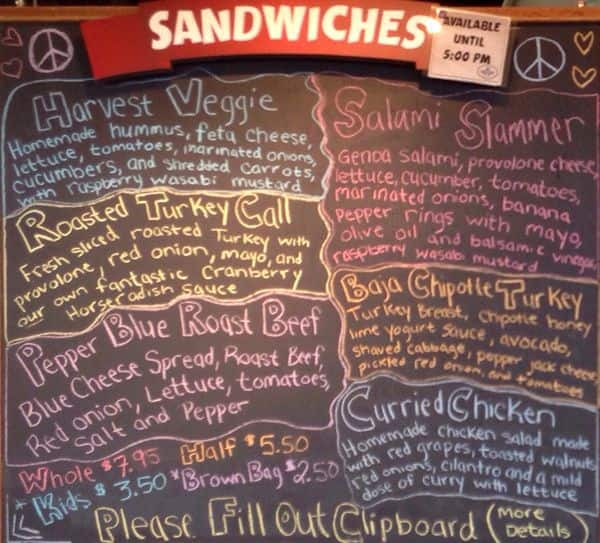 SANDWICHES
AVAILABLE
UNTIL
5:00 PM
Harvest Veggie
Homemade hummus, feta cheese,
lettuce, tomatoes, marinated onions,
cucumbers, and shredded carrots,
with raspberry wasabi mustard
Roasted Turkey Call
Fresh sliced roasted Turkey with
provolone, red onion, mayo, and
our own fantastic Cranberry
Horseradish sauce
Pepper Blue Roast Beef
Blue Cheese Spread, Roast Beef,
Red onion, Lettuce, tomatoes,
Salt and Pepper
Whole $7.95 Half $5.50
*Kids $3.50 *Brown Bag $2.50
Salami Slammer
Genoa Salami, provolone cheese,
lettuce, cucumber, tomatoes,
marinated onions, banana
pepper rings with mayo,
olive oil and balsamic vinegar,
raspberry wasabi mustard
Baja Chipotle Turkey
Turkey Breast, chipotle honey
lime yogurt sauce, avocado,
shaved cabbage, pepper jack cheese,
pickled red onion, and tomatoes
Curried Chicken
Homemade chicken salad made
with red grapes, toasted walnuts
red onions, cilantro and a mild
dose of curry with lettuce
Please Fill Out Clipboard (More
Details)